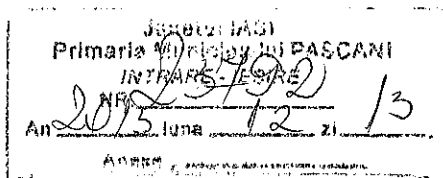 Judetul IASI
Primaria Municipiului PASCANI
INTRARE - IESIRE
NR. 23792
An 2013 luna 12 zi 13
Anexe